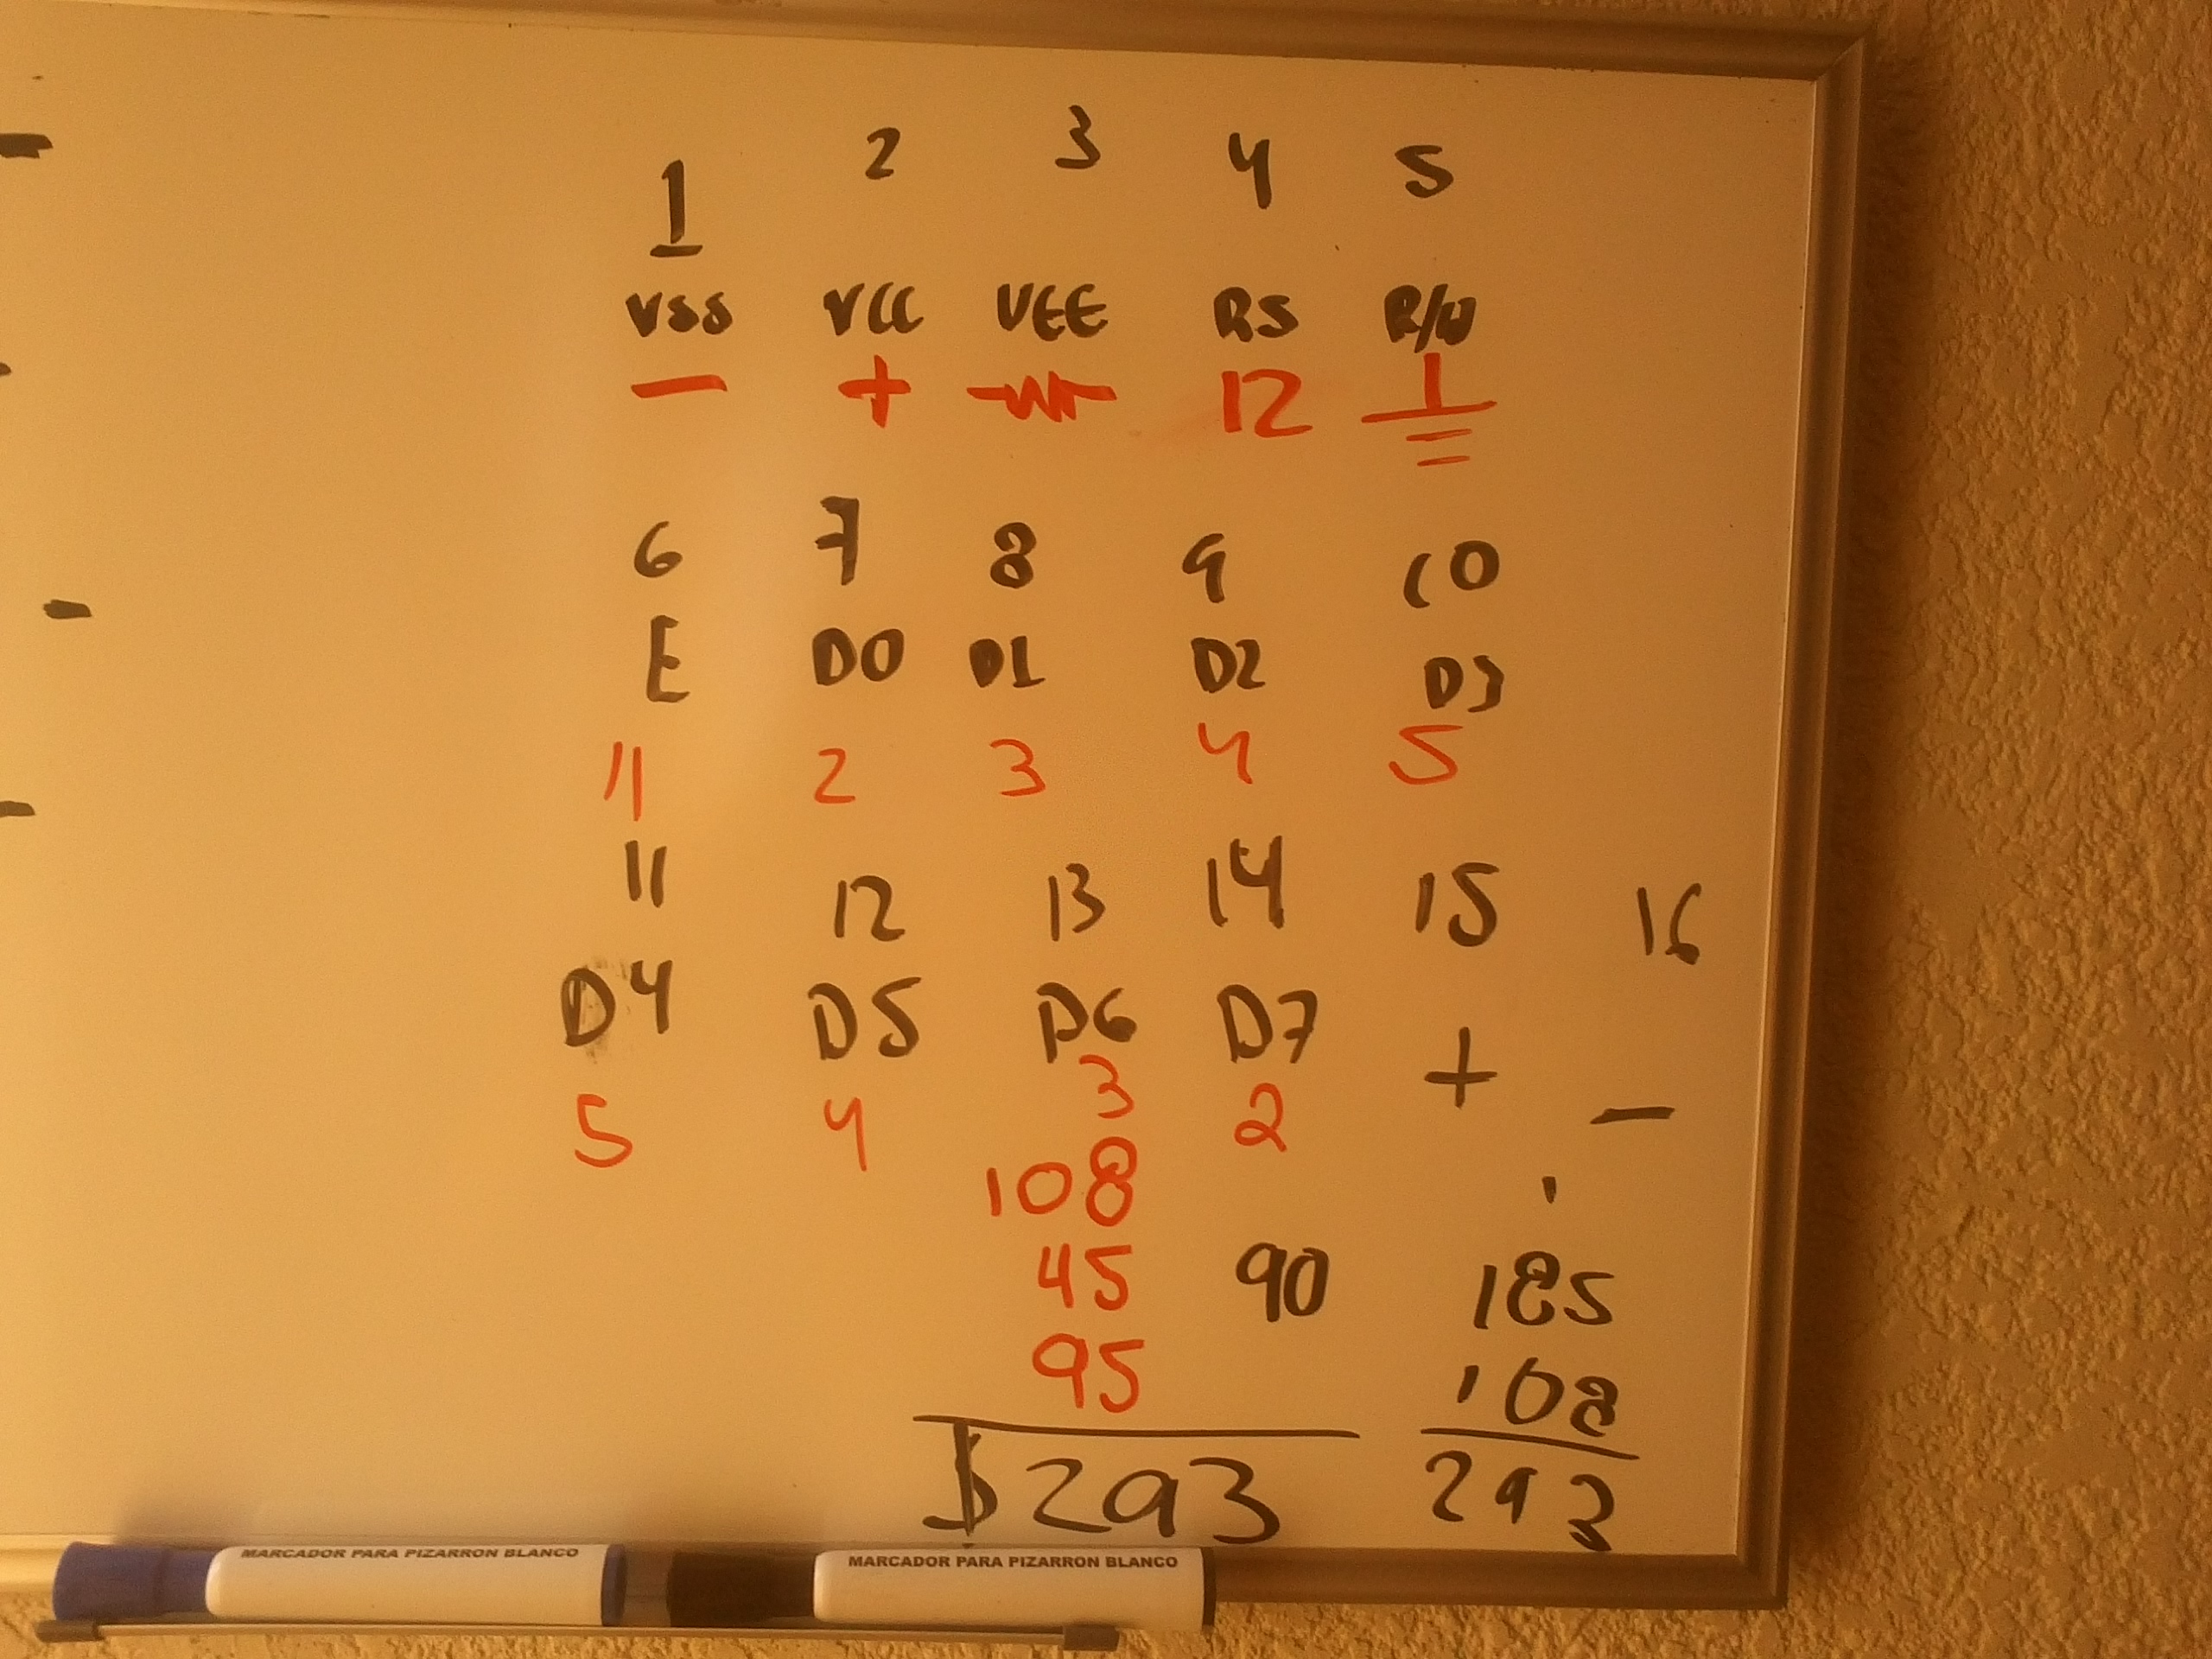 1 2 3 4 5
VSS VCC VEE RS R/W
— + 12
6 7 8 9 10
E D0 D1 D2 D3
11 2 3 4 5
11 12 13 14 15 16
D4 D5 D6 D7 + —
5 4 3 2
108
45 90 185
95 108
$293 293
MARCADOR PARA PIZARRON BLANCO MARCADOR PARA PIZARRON BLANCO